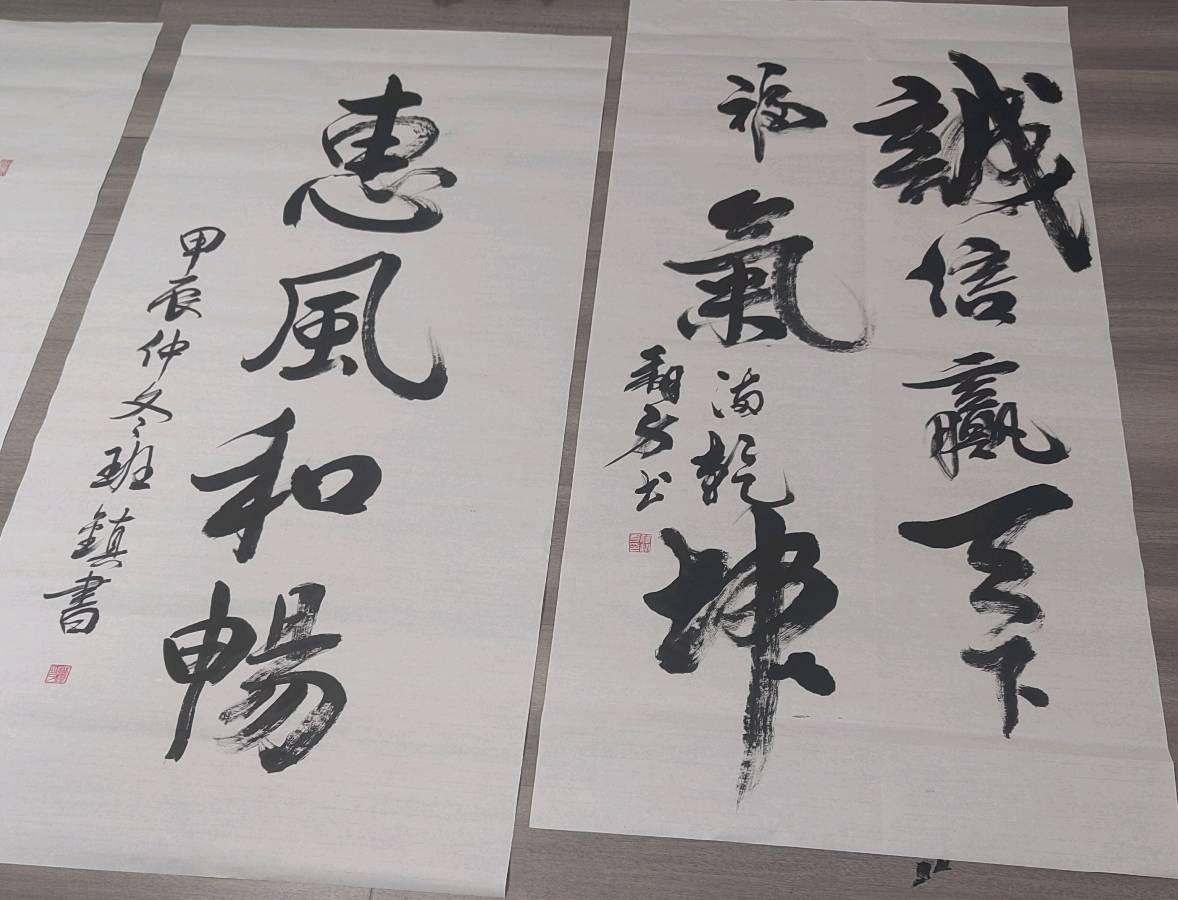 誠信贏天下
福氣滿乾坤
惠風和暢
甲辰仲冬班鎮書